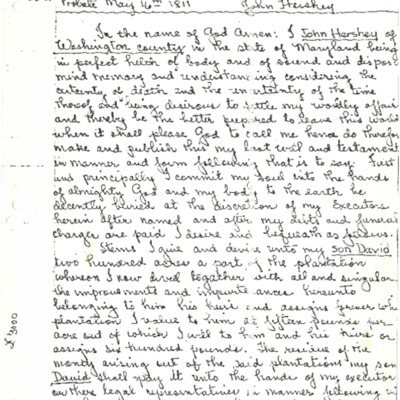 Probate May 16th 1811 John Hershey
In the name of God Amen: I John Hershey of
Washington county in the state of Maryland being
in perfect helth of body and of sound and dispos-
mind memory and understancing considering the
certainty of death and the uncertainty of the time
thereof and being desirous to settle my worldly affair
and thereby be the better prepared to leave this world
when it shall please God to call me hence do therefor
make and publish this my last will and testament
in manner and form following that is to say. First
and principally I commit my soul into the hands
of almighty God and my body to the earth be
decently buried at the discretion of my Executors
herein after named and after my debts and funeral
charges are paid I desire and bequeath as follows.
Items I give and devise unto my son David
two hundred acres a part of the plantation
whereon I now dwell together with all and singular
the improvements and
belonging to him his heirs and assigns forever wh
plantation I value to him at fifteen pounds per
acre out of which I will to him and his heirs or
assigns six hundred pounds. The residue of the
money arising out of the said plantations my son
David shall pay it unto the hands of my executor
or there legal representatives in manner following
£ 3000